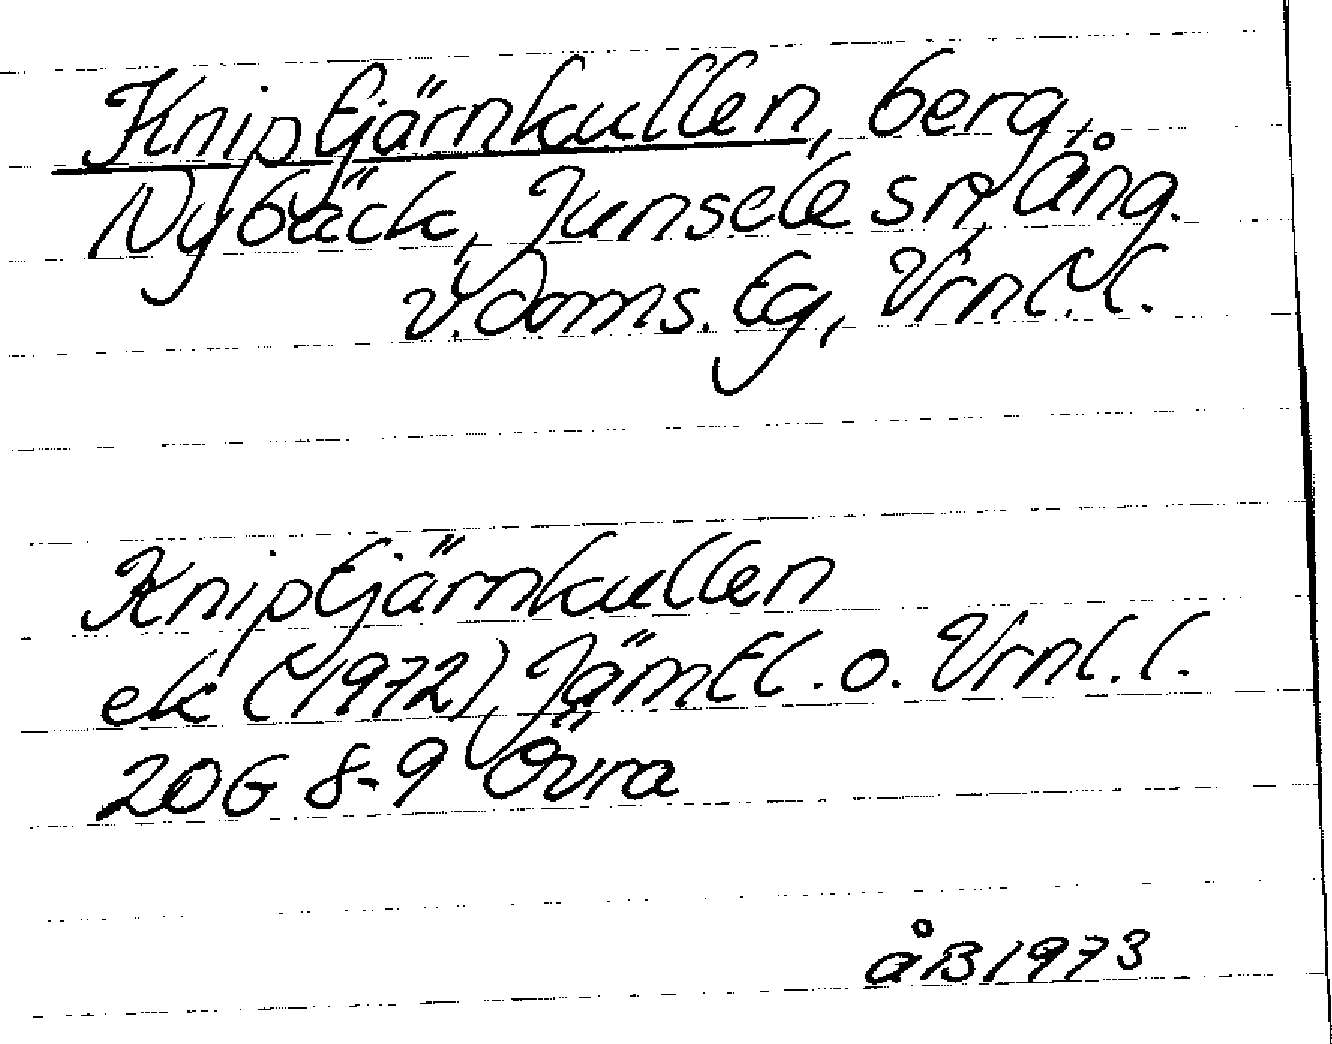 Kniptjärnkullen, berg,
Nybäck, Junsele sn, Ång.
V. Doms. tg, Vrnl. l.
Kniptjärnkullen
ek (1972), Jämtl. o. Vrnl. l.
20G 8-9 Övra
åB 1973